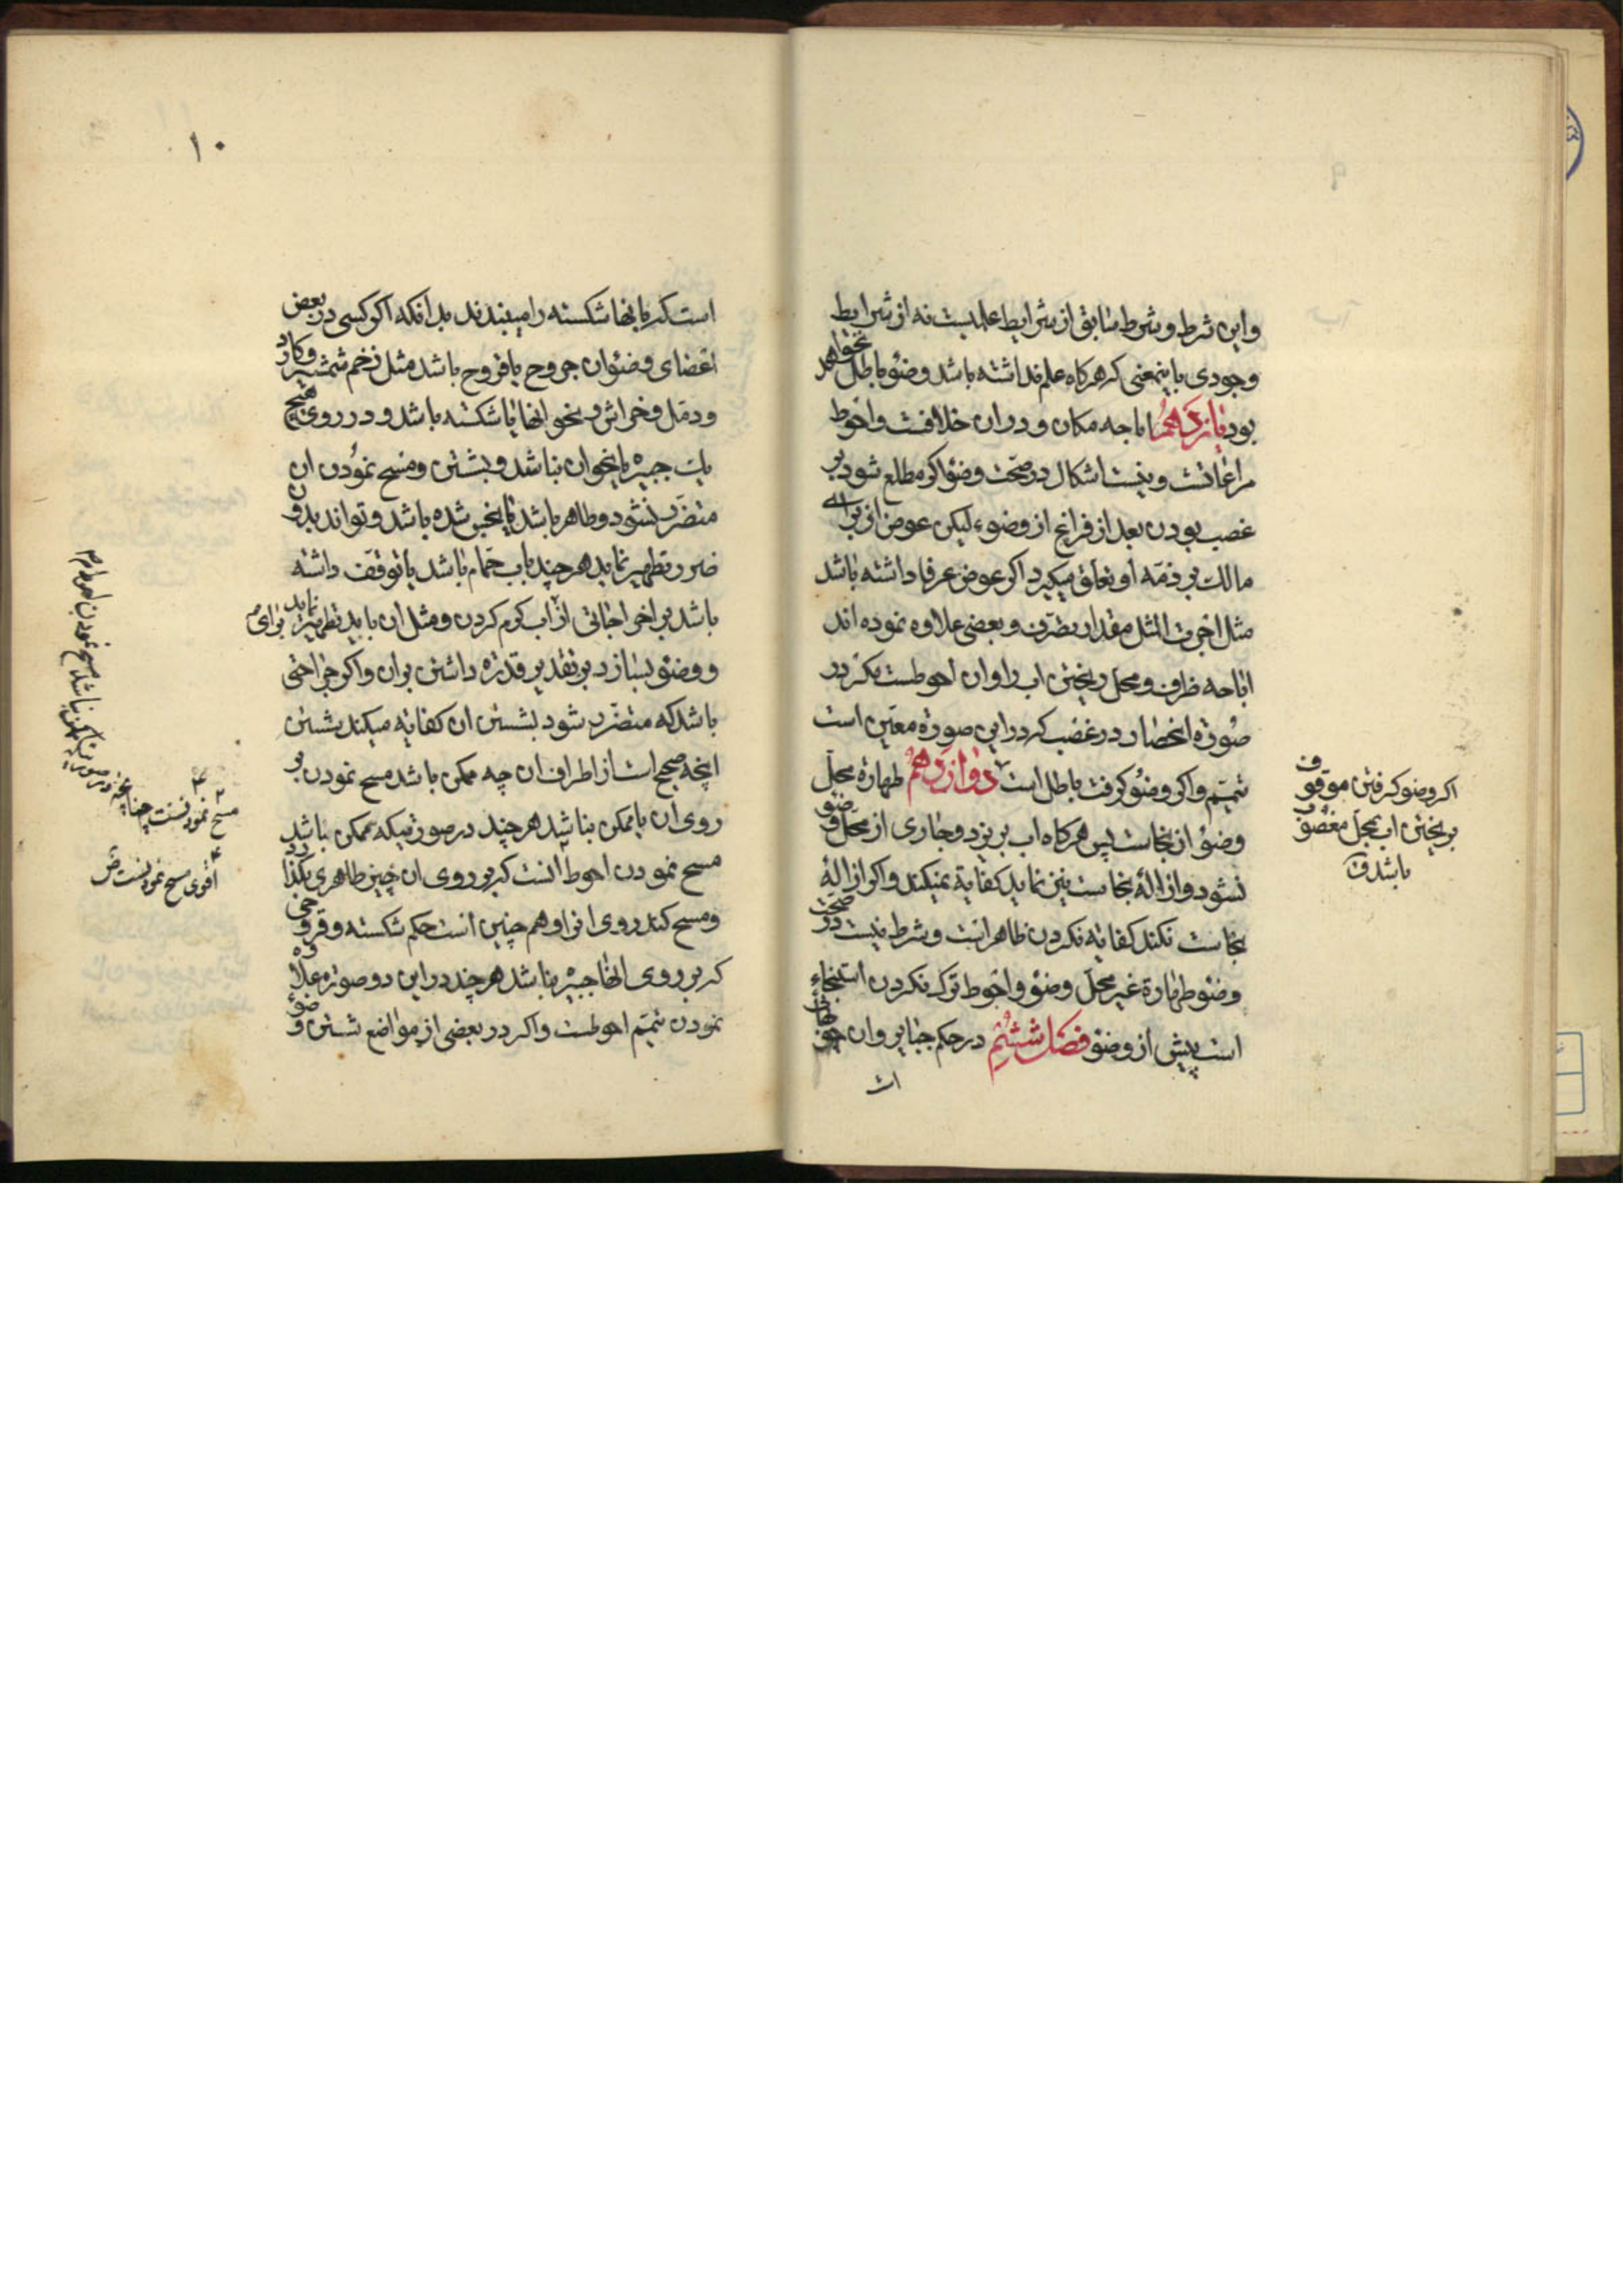 واین شرط و شرط سابق از شرایط علمیست نه از شرایط
وجودی باینمعنی که هرکاه علم نداشته باشد وضؤ باطل نخواهد
بود یازدهم اباحه مکان و در ان خلافست و احوط
مراعاتست و نیست اشکال در صحّت وضؤ اکر مطلع شود بر
غصب بودن بعد از فراغ از وضوء لیکن عوض از برای
مالک بر ذمّه او تعلق میکیرد اکر عوض عرفا داشته باشد
مثل اجرت المثل مقدار تصرّف و بعضی علاوه نموده اند
اباحه ظرف و محل ریختن اب را و ان احوطست مکر در
صورة انحصار در غصب که در این صورة معیّن است
تیمّم و اکر وضؤ کرفت باطل است دوازدهم طهارة محلّ
وضؤ از نجاست پس هرکاه اب بریزد و جاری از محلّ وضؤ
نشود و ازالۀ نجاست نیز نماید کفایة نمیکند و اکر ازالۀ
نجاست نکند کفایة نکردن ظاهر است و شرط نیست در صحّت
وضؤ طهارة غیر محلّ وضؤ و احوط ترک نکردن استنجاء
است پیش از وضؤ فصل ششم در حکم جبایر و ان چوبهائی
است
اکر وضو کرفتن موقوف
بر یختن اب بمحل مغصوب
باشد ق
۱۰
است که بانها شکسته را میبندند بدانکه اکر کسی در بعض
اعضای وضؤ ان جروح یا قروح باشد مثل زخم شمشیر و کارد
و دمّل و خراش و نحو انها یا شکسته باشد و در روی هیچ
یک جبیره یا نحو ان نباشد و بشستن و مسح نمودن ان
متضرّر نشود و طاهر باشد یا نجس شده باشد و تواند بدون
ضرر تطهیر نماید هرچند باب حمّام باشد یا توقف داشته
باشد بر اخراجاتی از اب کرم کردن و مثل ان باید تطهیر نماید برای
و وضؤ بسازد بر تقدیر قدرة داشتن بر ان و اکر جراحتی
باشد که متضرّر شود بشستن ان کفایة میکند شستن
انچه صحیح است از اطراف ان چه ممکن باشد مسح نمودن بر
روی ان یا ممکن نباشد هرچند در صورتیکه ممکن باشد
مسح نمودن احوط انست که بر روی ان چیز طاهری بکذارد
و مسح کند روی انرا و هم چنین است حکم شکسته و قروحی
که بر روی انها جبیره نباشد هرچند در این دو صورة علاوه
نمودن تیمّم احوطست و اکر در بعضی از مواضع شستن وضؤ
مسح نمودنست چنانچه در صورتیکه ممکن نباشد مسح نمودن
اقوی مسح نمودنست ض